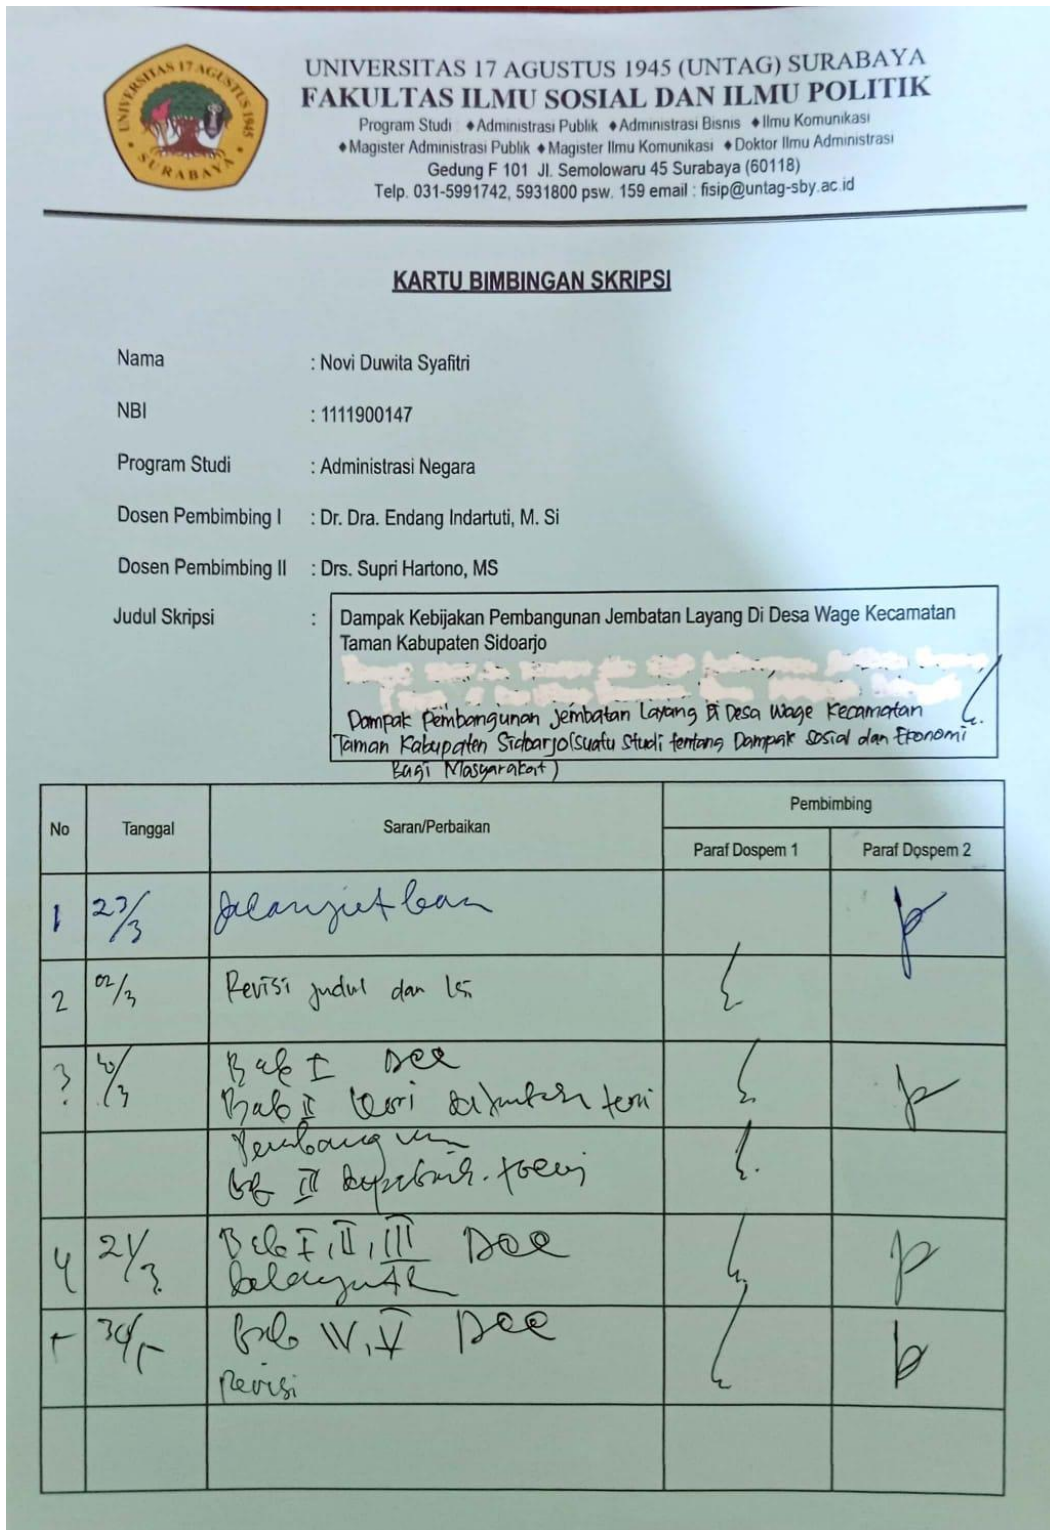 UNIVERSITAS 17 AGUSTUS 1945
SURABAYA
UNIVERSITAS 17 AGUSTUS 1945 (UNTAG) SURABAYA
FAKULTAS ILMU SOSIAL DAN ILMU POLITIK
Program Studi : ♦Administrasi Publik ♦Administrasi Bisnis ♦Ilmu Komunikasi
♦Magister Administrasi Publik ♦Magister Ilmu Komunikasi ♦Doktor Ilmu Administrasi
Gedung F 101 Jl. Semolowaru 45 Surabaya (60118)
Telp. 031-5991742, 5931800 psw. 159 email : fisip@untag-sby.ac.id
KARTU BIMBINGAN SKRIPSI
Nama : Novi Duwita Syafitri
NBI : 1111900147
Program Studi : Administrasi Negara
Dosen Pembimbing I : Dr. Dra. Endang Indartuti, M. Si
Dosen Pembimbing II : Drs. Supri Hartono, MS
Judul Skripsi : Dampak Kebijakan Pembangunan Jembatan Layang Di Desa Wage Kecamatan
Taman Kabupaten Sidoarjo
Dampak Pembangunan Jembatan Layang Di Desa Wage Kecamatan
Taman Kabupaten Sidoarjo (Suatu Studi tentang Dampak Sosial dan Ekonomi
Bagi Masyarakat)
No Tanggal Saran/Perbaikan Pembimbing
Paraf Dospem 1 Paraf Dospem 2
1 23/3
2 02/3 Revisi judul dan
3 Bab I acc
Bab II teori
Pembangunan
III
4 21/3 Bab I, II, III acc
30/5 Bab IV, V acc
Revisi